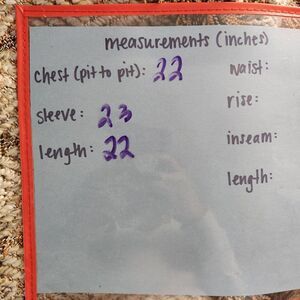 measurements (inches)
chest (pit to pit): 22
sleeve: 23
length: 22
waist:
rise:
inseam:
length: